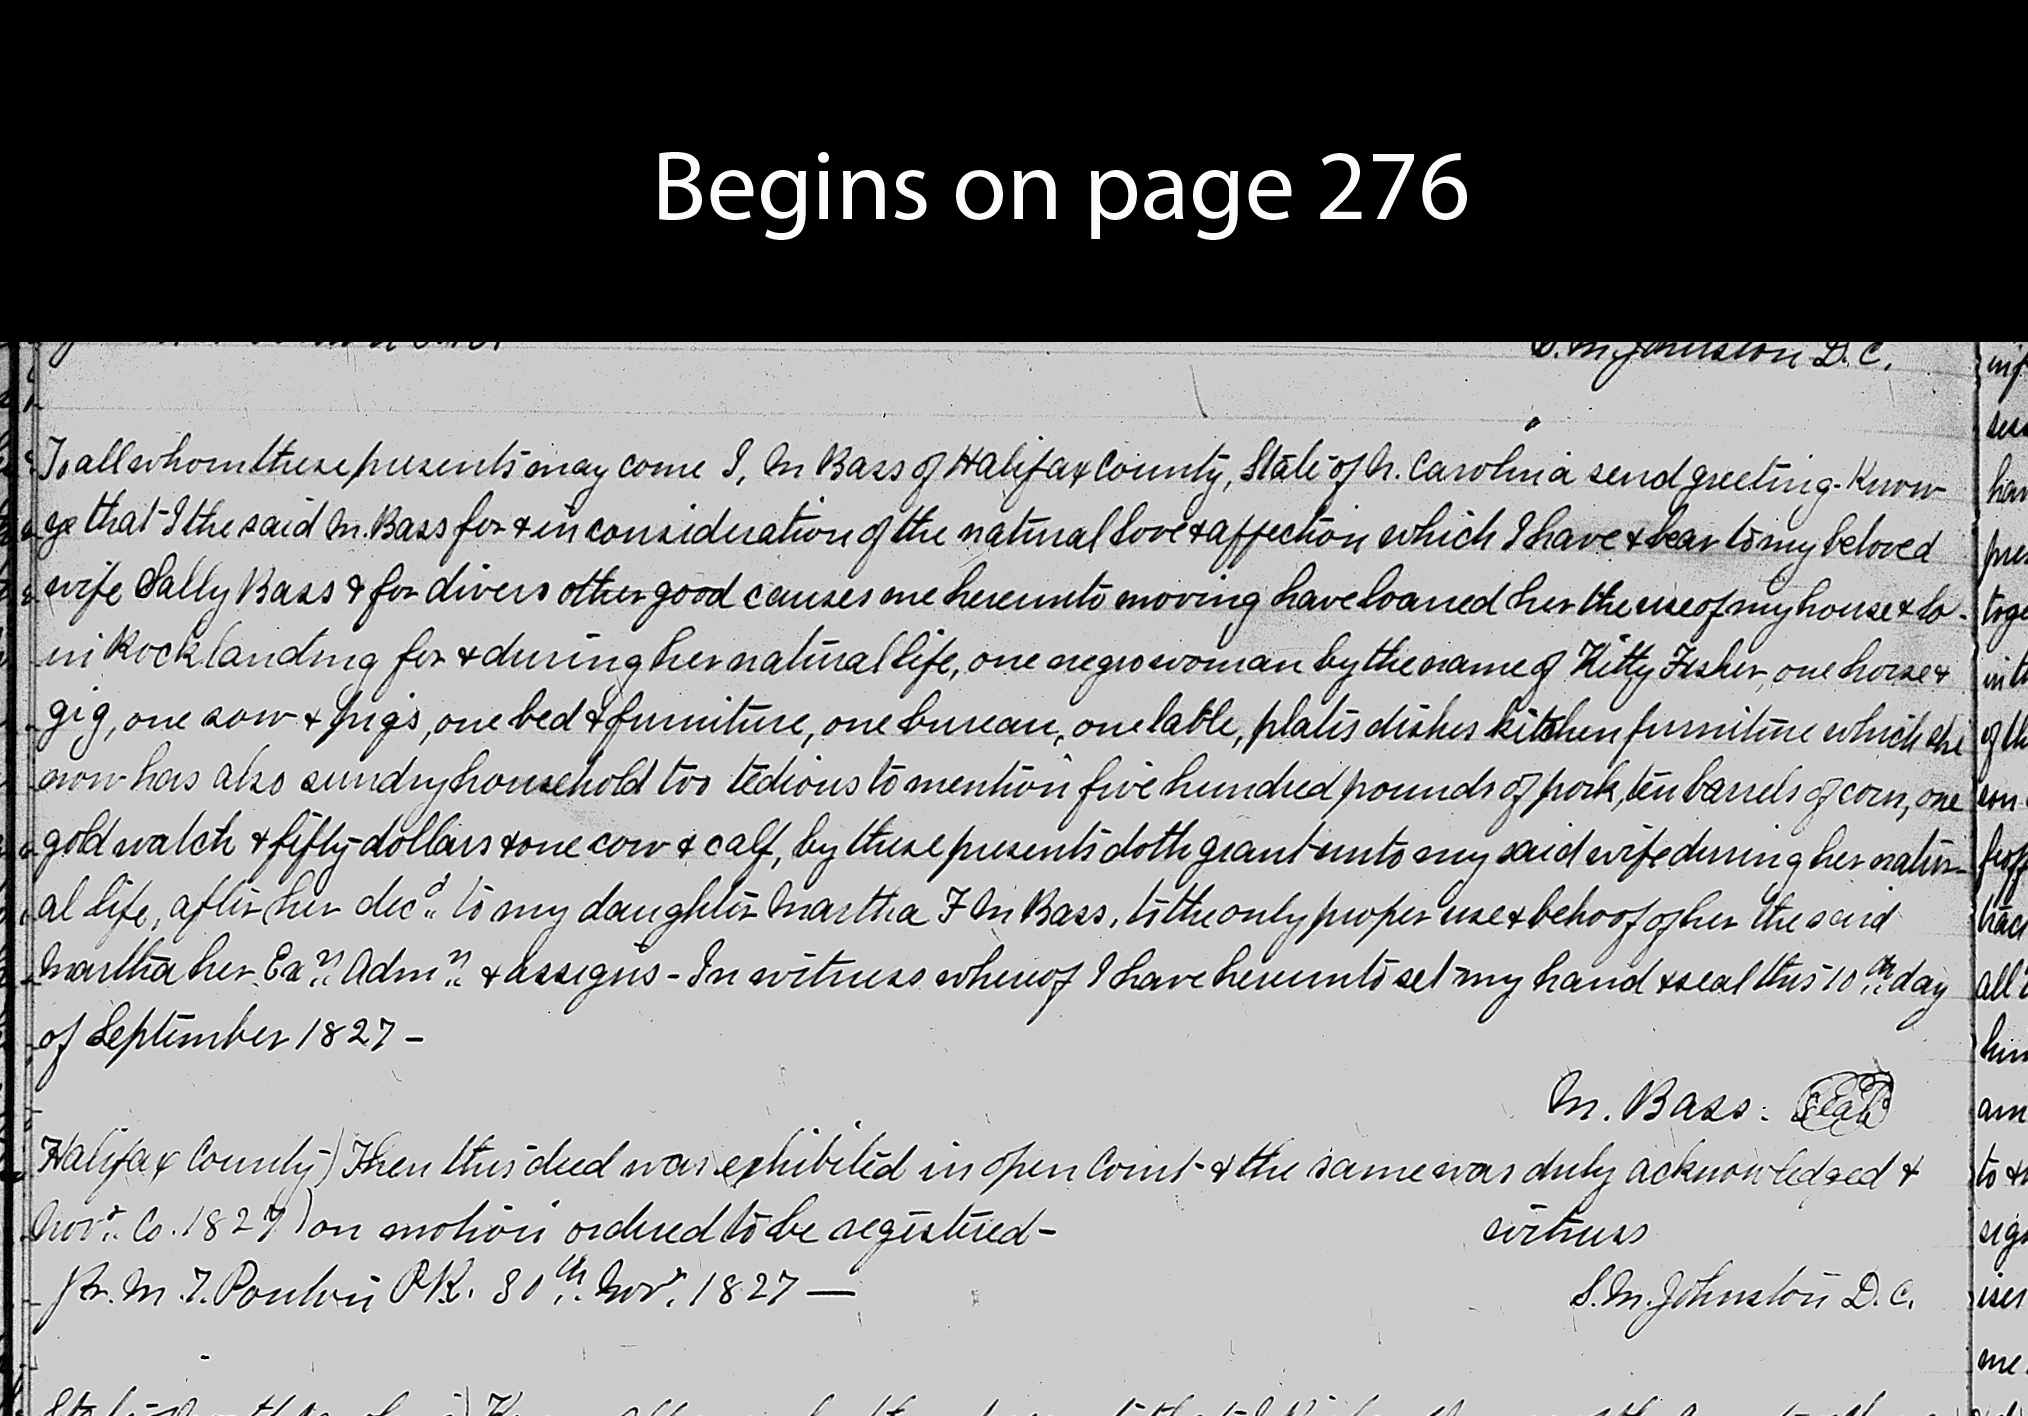 Begins on page 276
S. M. Johnston D. C.
To all whom these presents may come I, M Bass of Halifax County, State of N. Carolina send greeting. Know
ye that I the said M. Bass for & in consideration of the natural love & affection which I have & bear to my beloved
wife Sally Bass & for divers other good causes me hereunto moving have loaned her the use of my house & lo-
in Rocklanding for & during her natural life, one negro woman by the name of Kitty Fisher, one horse &
gig, one sow & pigs, one bed & furniture, one bureau, one table, plates dishes kitchen furniture which she
now has also sundry household too tedious to mention five hundred pounds of pork, ten barrels of corn, one
gold watch & fifty dollars & one cow & calf, by these presents doth grant unto my said wife during her natur-
al life, after her decd. to my daughter Martha F M Bass, to the only proper use & behoof of her the said
Martha her Exrs. Admrs. & assigns - In witness whereof I have hereunto set my hand & seal this 10th. day
of September 1827 -
M. Bass. Seal
Halifax County) Then this deed was exhibited in open Court & the same was duly acknowledged &
Novr. Co. 1827) on motion ordered to be registered -
witness
Pr. M. T. Ponton P.R. 30th. Novr. 1827 —
S. M. Johnston D. C.